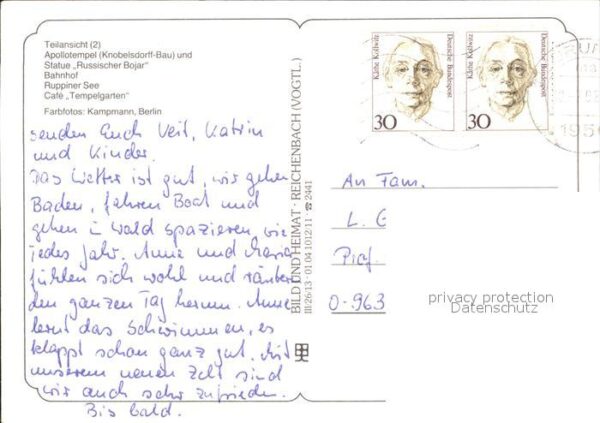 Teilansicht (2)
Apollotempel (Knobelsdorff-Bau) und
Statue „Russischer Bojar"
Bahnhof
Ruppiner See
Café „Tempelgarten"
Farbfotos: Kampmann, Berlin
senden Euch Veit, Katrin
und Kinder.
Das Wetter ist gut, wir gehen
Baden, fahren Boot und
gehen in Wald spazieren, wie
jedes Jahr. Anne und Maria
fühlen sich wohl und räubern
den ganzen Tag herum. Anne
lernt das Schwimmen, es
klappt schon ganz gut. Mit
unserem neuen Zelt sind
wir auch sehr zufrieden.
Bis bald.
BILD UND HEIMAT · REICHENBACH (VOGTL.)
III/26/13 · 01 04 1012 11 ☎ 2441
Käthe Kollwitz
Deutsche Bundespost
30
Käthe Kollwitz
Deutsche Bundespost
30
195
An Fam.
L.
O-963
privacy protection
Datenschutz